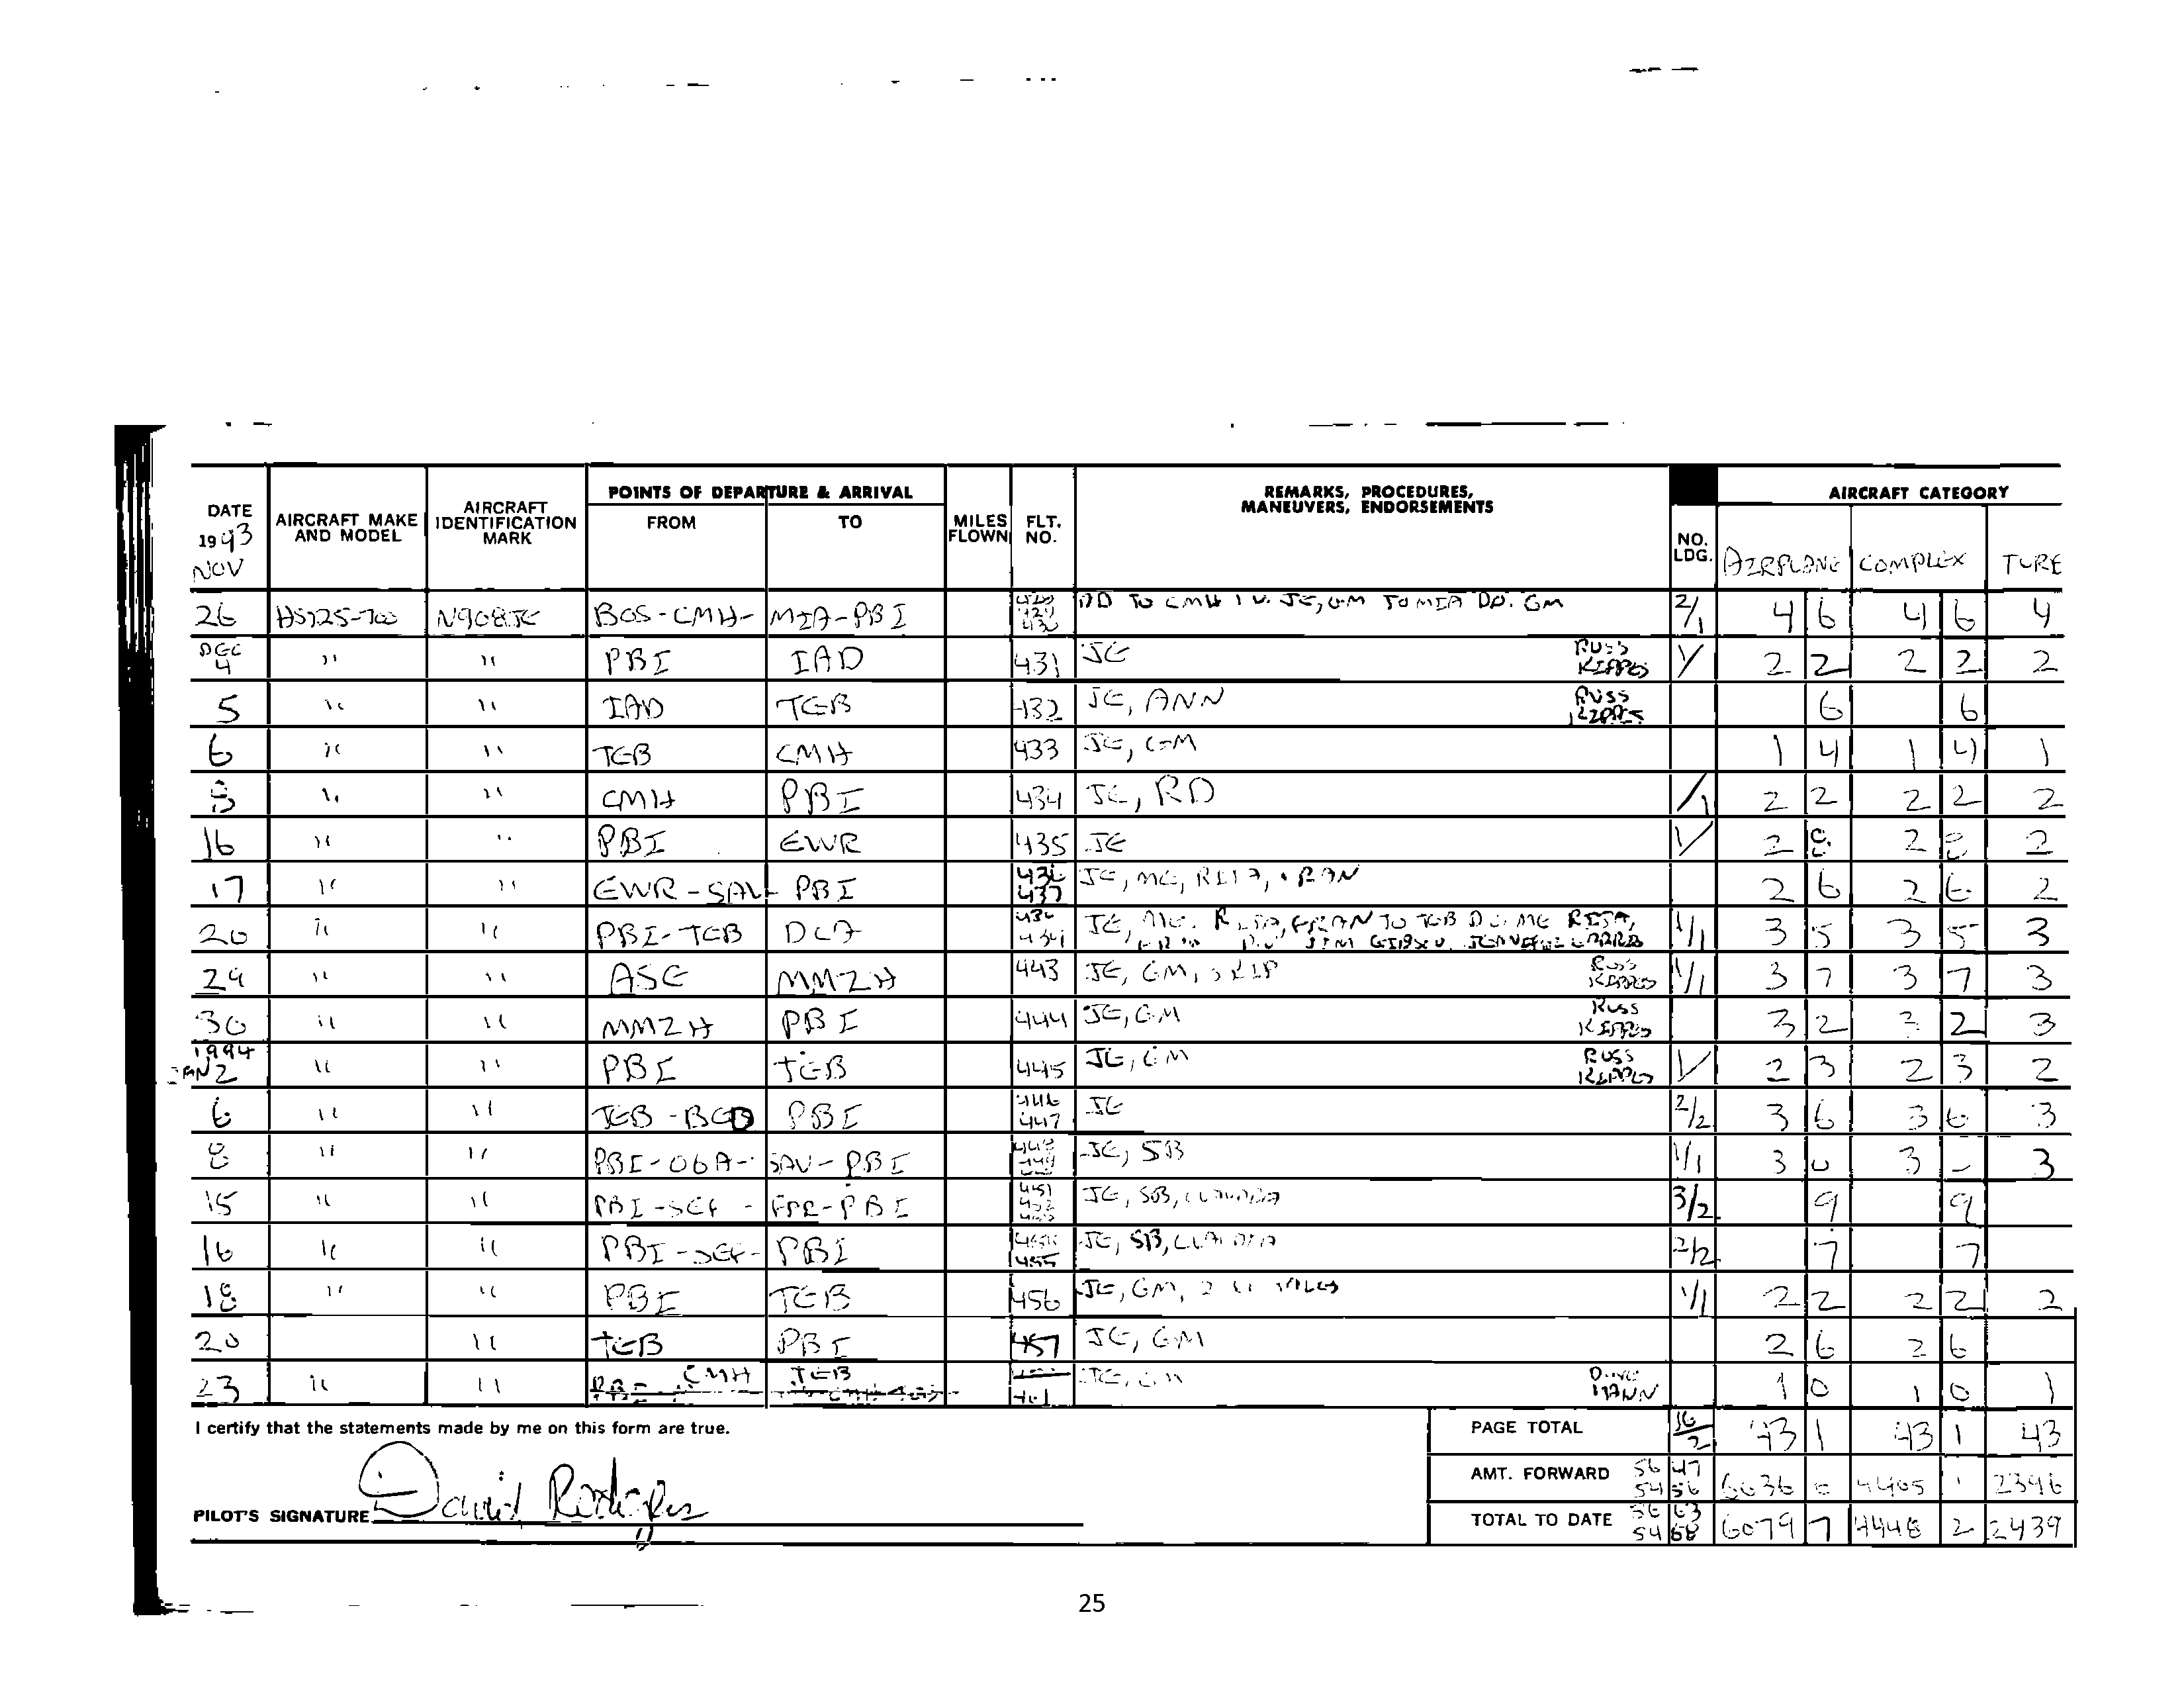 POINTS OF DEPARTURE & ARRIVAL
REMARKS, PROCEDURES,
MANEUVERS, ENDORSEMENTS
AIRCRAFT CATEGORY
DATE
1993
NOV
AIRCRAFT MAKE
AND MODEL
AIRCRAFT
IDENTIFICATION
MARK
FROM
TO
MILES
FLOWN
FLT.
NO.
NO.
LDG.
AIRPLANE COMPLEX TURE
26 HS125-700 N908JE BOS-CMH- MIA-PBI TO CMH JE, GM TO MIA DO. GM 2/1 4 6 4 6 4
DEC 4 " " PBI IAD 431 JE RUSS 2 2 2 2 2
5 " " IAD TEB 432 JE, ANN RUSS 6 6
6 " " TEB CMH 433 JE, GM 1 4 1 4 1
" " CMH PBI 434 JE, RD /1 2 2 2 2 2
16 " " PBI EWR 435 JE 1/ 2 8 2 8 2
17 " " EWR-SAV- PBI 436 437 JE, ME, 2 6 2 6 2
20 " " PBI-TEB JE, TO TEB 1/1 3 5 3 5 3
29 " " ASE MMZH 443 JE, GM, SKIP RUSS 1/1 3 7 3 7 3
30 " " MMZH PBI 444 JE, GM RUSS 3 2 3 2 3
1994
JAN 2 " " PBI TEB 445 JE, GM RUSS 1/ 2 3 2 3 2
6 " " TEB- PBI 446 447 JE 2/2 3 6 3 6 3
8 " " PBI-06A- SAV-PBI JE, SB 1/1 3 0 3 - 3
15 " " PBI-SEF - FPR-PBI 451 JE, SB, CLAUDIA 3/2 9 9
16 " " PBI-SEF- PBI 455 JE, SB, CLAUDIA 2/2 7 7
18 " " PBI TEB 456 JE, GM, 1/1 2 2 2 2 2
20 " TEB PBI 457 JE, GM 2 6 2 6
23 " " CMH TEB JE, GM DAVE MANN 1 0 1 0 1
I certify that the statements made by me on this form are true.
PAGE TOTAL 16/2 43 1 43 1 43
AMT. FORWARD 5647 5456 6036 4405 1 2396
PILOT'S SIGNATURE David Rodgers
TOTAL TO DATE 5663 5468 6079 7 4448 2 2439
25